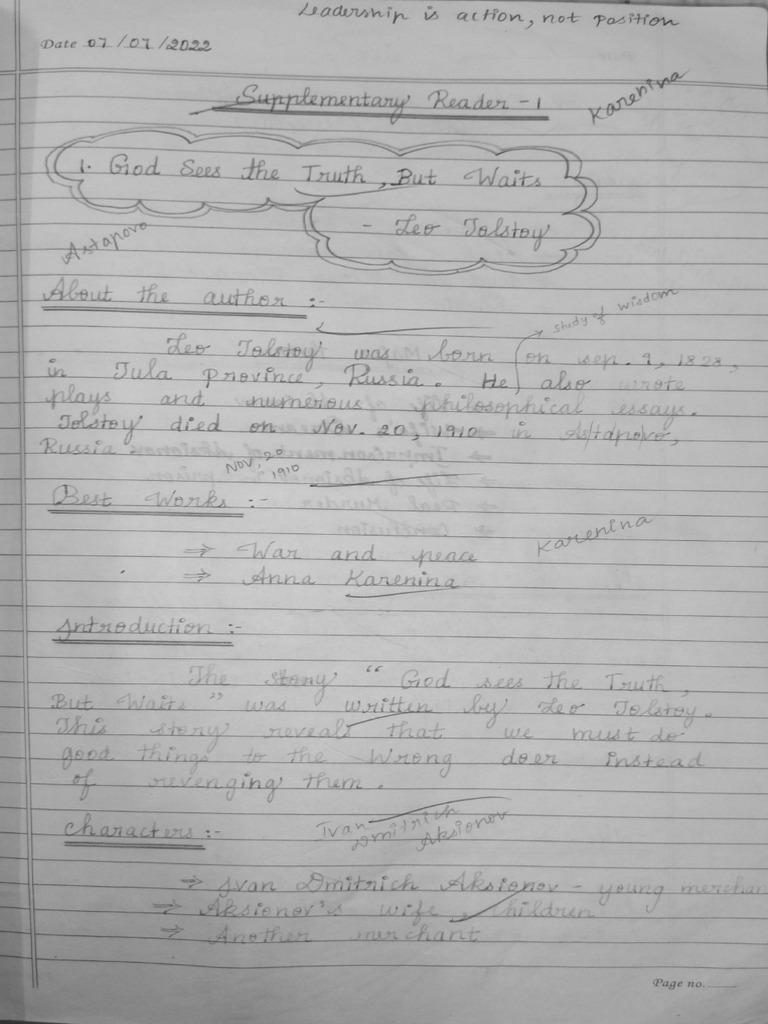 Leadership is action, not position
Date 07/07/2022
Supplementary Reader - 1
Karenina
1. God Sees the Truth, But Waits
- Leo Tolstoy
Astapovo
About the author :-
study of wisdom
Leo Tolstoy was born on sep. 9, 1828,
in Tula province, Russia. He also wrote
plays and numerous philosophical essays.
Tolstoy died on Nov. 20, 1910 in Astapovo,
Russia
Nov, 20
1910
Best Works :-
Karenina
⇒ War and peace
⇒ Anna Karenina
Introduction :-
The story " God sees the Truth,
But Waits " was written by Leo Tolstoy.
This story reveals that we must do
good things to the wrong doer instead
of revenging them.
Characters :-
Ivan
Dmitrich
Aksionov
⇒ Ivan Dmitrich Aksionov - young merchan
⇒ Aksionov's wife, children
⇒ Another merchant
Page no.